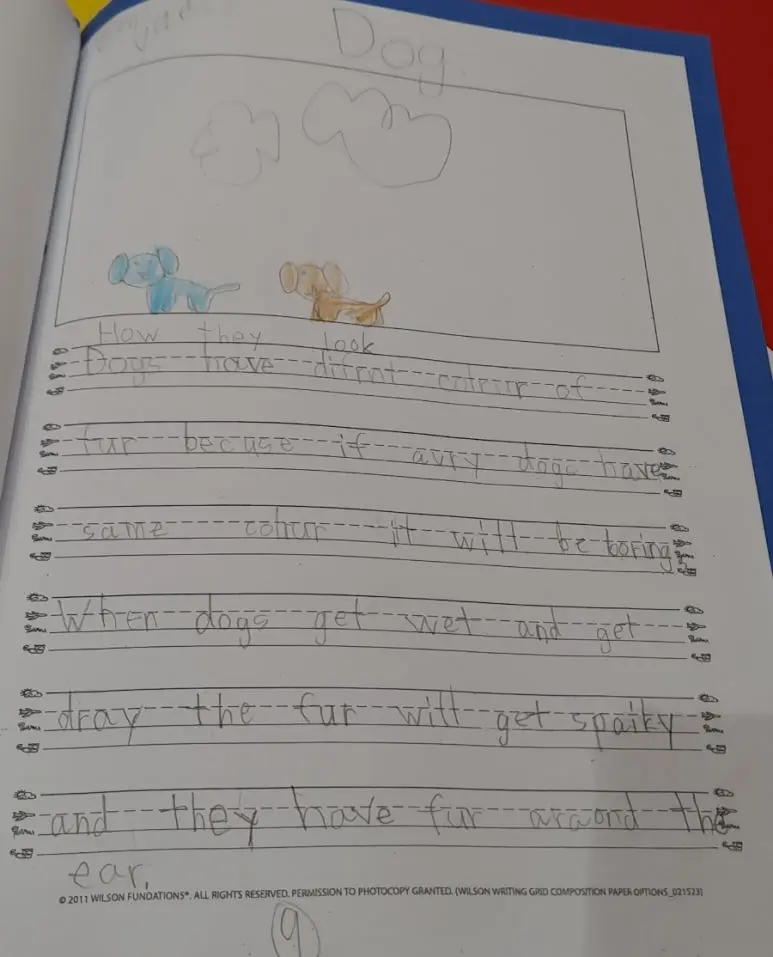 Dog.
How they look
Dogs have difrnt colour of
fur becuse if avry dogs have
same colur it will be boring.
When dogs get wet and get
dray the fur will get spaiky
and they have fur araond the
ear.
© 2011 WILSON FUNDATIONS®. ALL RIGHTS RESERVED. PERMISSION TO PHOTOCOPY GRANTED. (WILSON WRITING GRID COMPOSITION PAPER OPTIONS_021523)
9